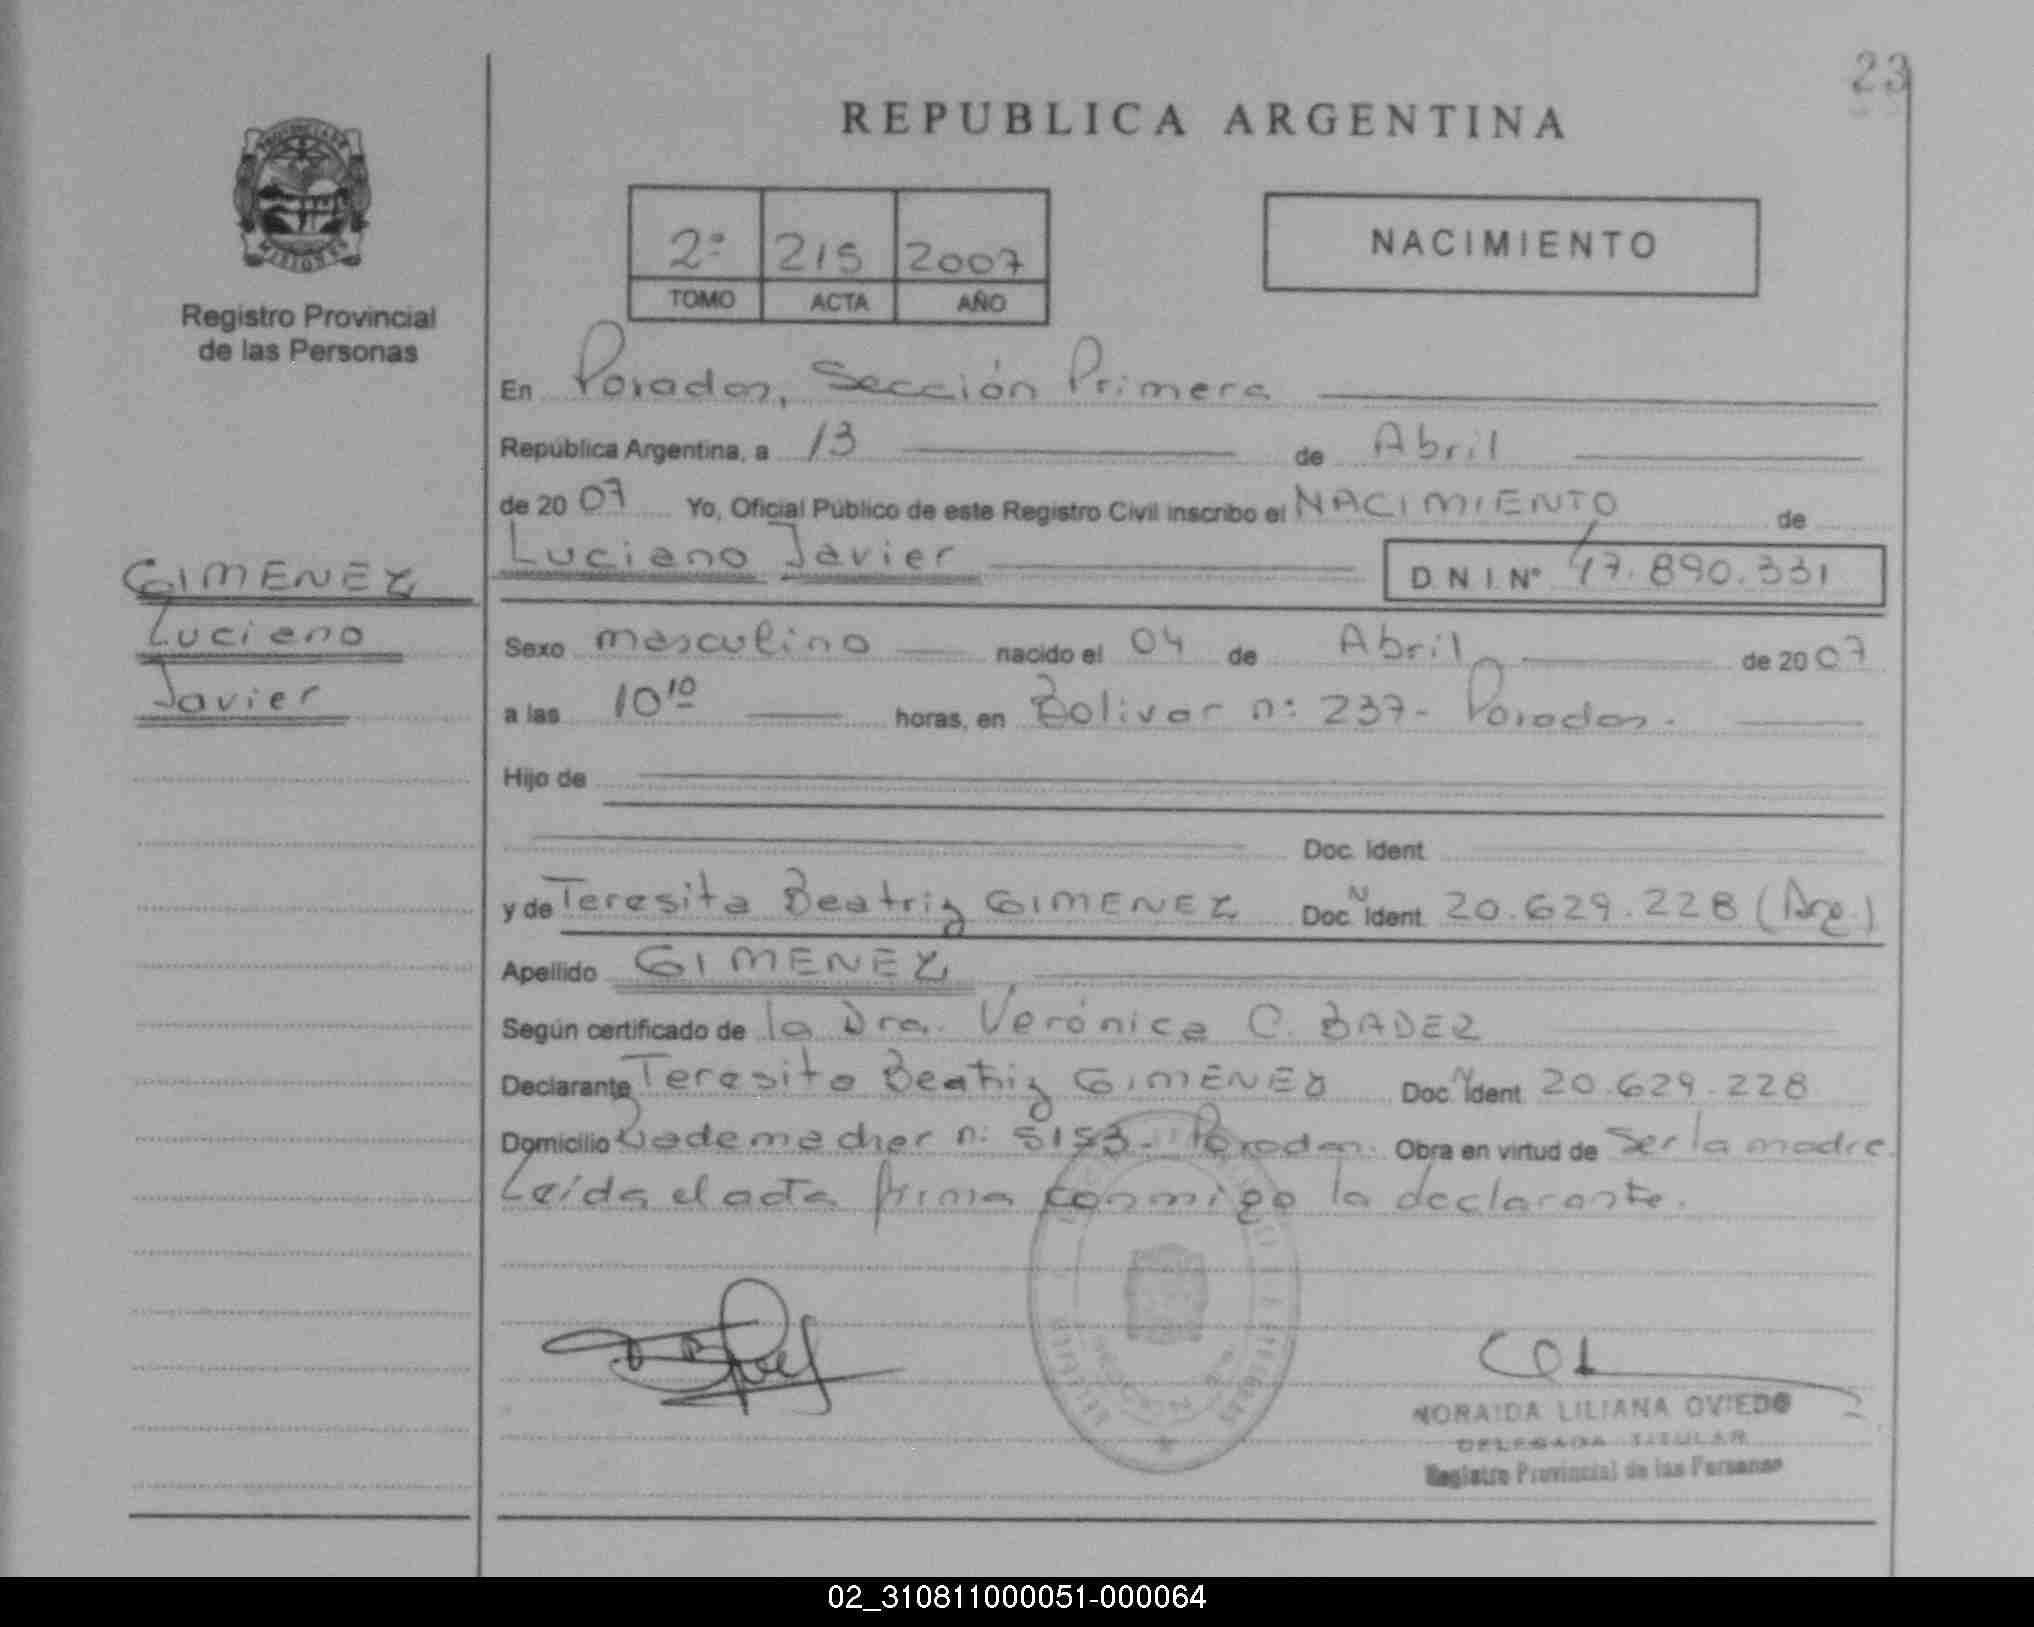 23
REPUBLICA ARGENTINA
PROVINCIA DE MISIONES
2º 215 2007
TOMO ACTA AÑO
NACIMIENTO
Registro Provincial
de las Personas
En Posadas, Sección Primera
República Argentina, a 13 de Abril
de 2007 Yo, Oficial Público de este Registro Civil inscribo el NACIMIENTO de
Luciano Javier D.N.I.Nº 47.890.331
GIMENEZ
Luciano
Javier
Sexo masculino nacido el 04 de Abril de 2007
a las 10¹⁰ horas, en Bolivar nº 237- Posadas.
Hijo de
Doc. Ident.
y de Teresita Beatriz GIMENEZ Doc. N Ident. 20.629.228 (Arg.)
Apellido GIMENEZ
Según certificado de la Dra. Verónica C. BADER
Declarante Teresita Beatriz GIMENEZ Doc. N Ident. 20.629.228
Domicilio Rademacher nº 5153- Posadas. Obra en virtud de ser la madre.
Leída el acta firma conmigo la declarante.
NORAIDA LILIANA OVIEDO
DELEGADA TITULAR
Registro Provincial de las Personas
02_310811000051-000064